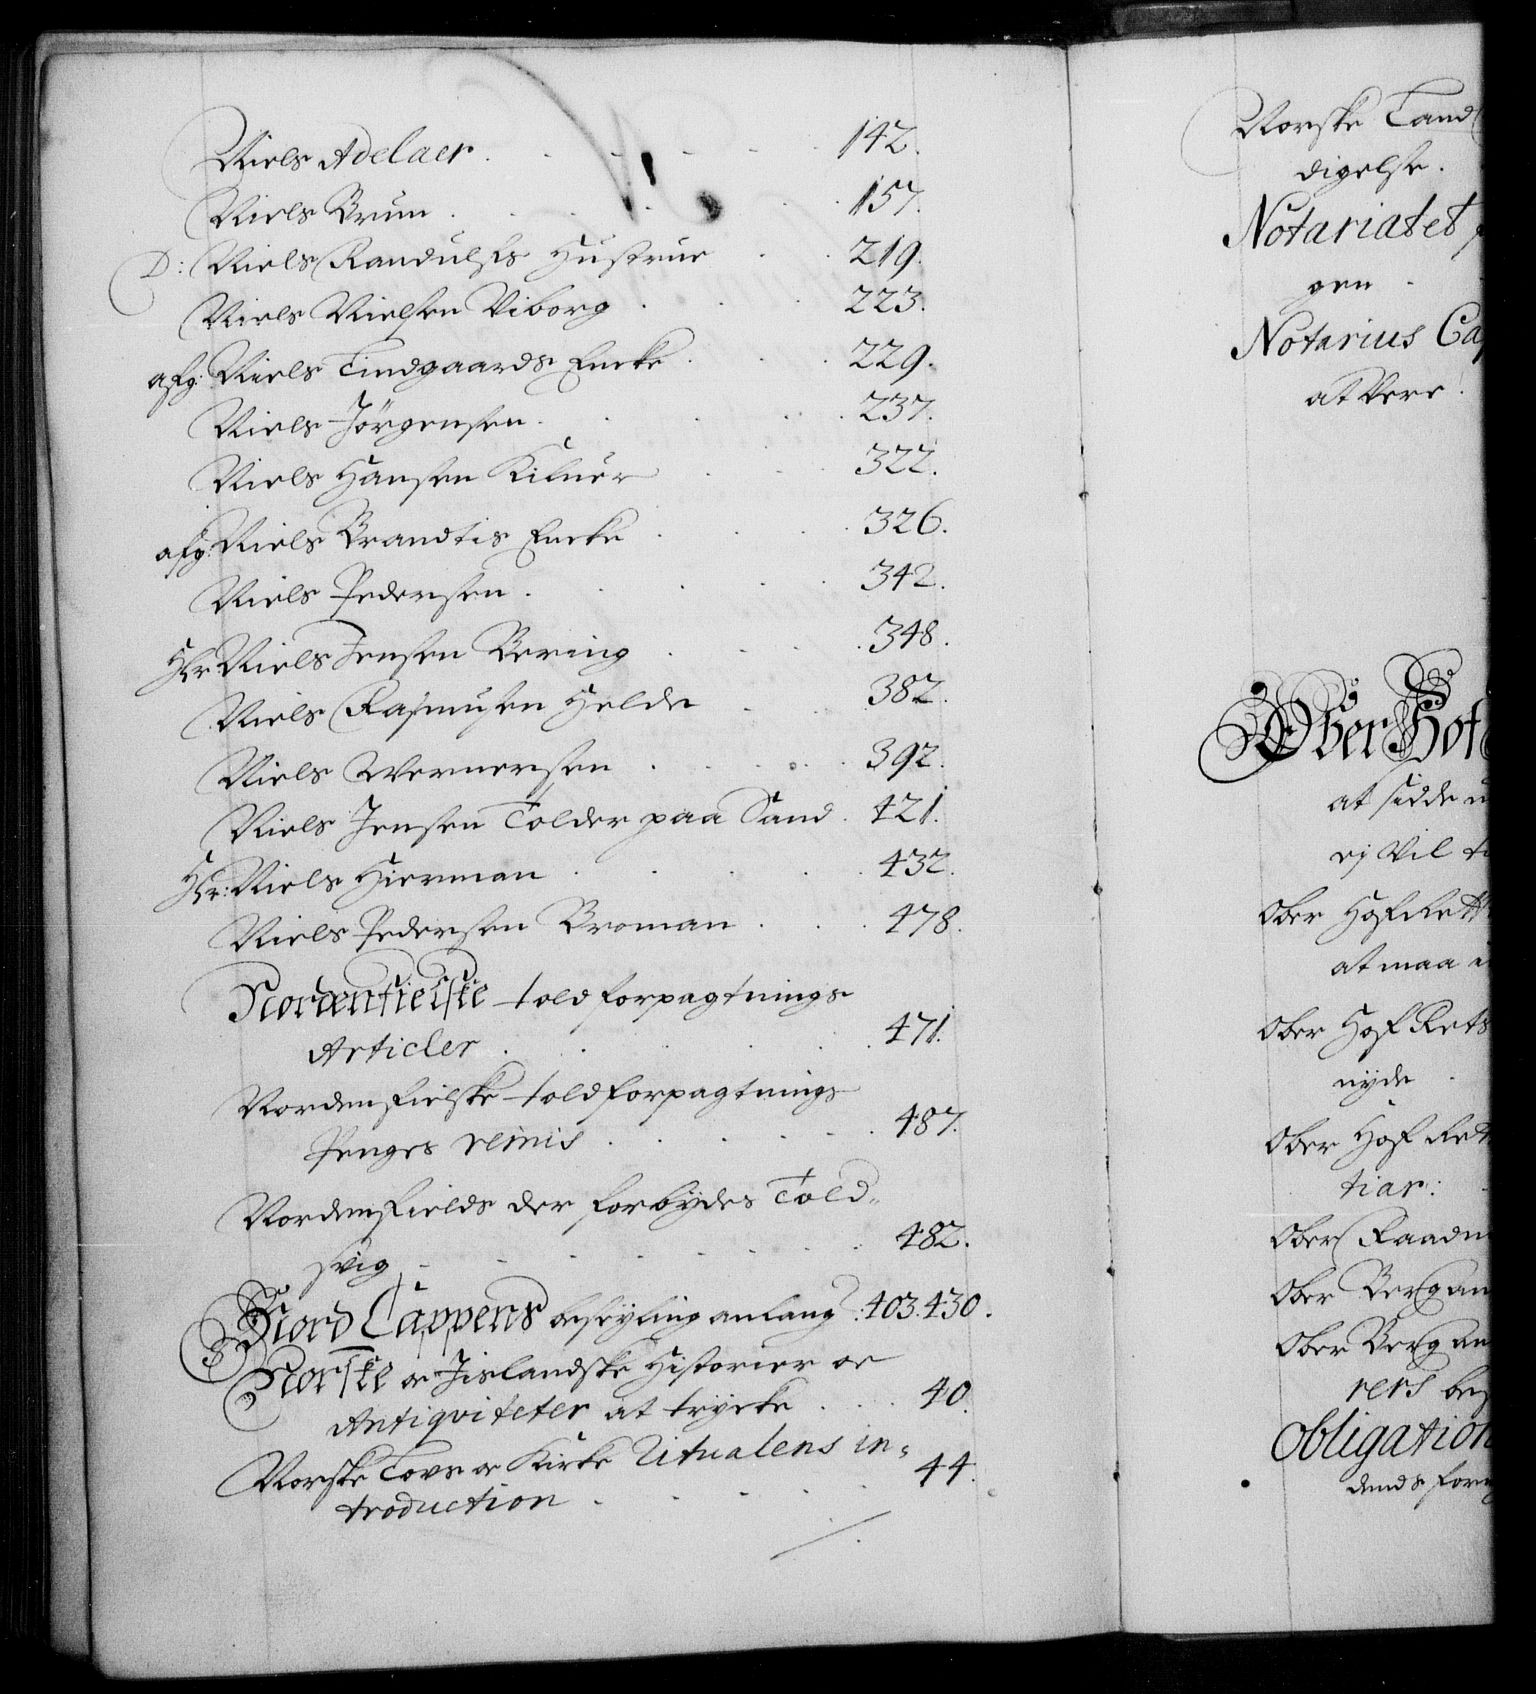 Niels Adelaer . . . . . 142.
Niels Brun . . . . . 157.
D: Niels Randulfs Hustrue . . 219.
Niels Nielsen Viborg . . . 223.
afg: Niels Lindgaards Encke . . . 229.
Niels Jörgensen . . . . 237.
Niels Hansen . . . 322.
afg: Niels Brandtis Encke . . . 326.
Niels Pedersen . . . . 342.
Hr Niels Jensen Bering . . . . 348.
Niels Rasmusen Helde . . . 382.
Niels Wernersen . . . . 392.
Niels Jensen Tolder paa Sand . 421.
Hr: Niels Hierman . . . . . 432.
Niels Pedersen Broman . . . 478.
Nordenfielske toldforpagtnings
Articler . . . . . . 471.
Nordenfielske toldforpagtnings
Penges remis . . . . . 487.
Nordenfields der forbydes Told-
svig . . . . . . 482.
Nord Cappens beseyling anlang: 403. 430.
Norske oc Jislandske Historier oc
Antiqviteter at trycke . . . 40.
Norske Lovs oc Kirke Ritualens in-
troduction . . . . . 44.
Norske Land
digelse.
Notariatet
gen .
Notarius Ca
at Vere
Ober Hof
at sidde u
ej Vil t
Ober HofRett
at maa
Ober Hof Rets
nyde .
Ober Hof Rett
tiar:
Ober Raadm
Ober Bergam
Ober Bergam
rers bes
Obligation